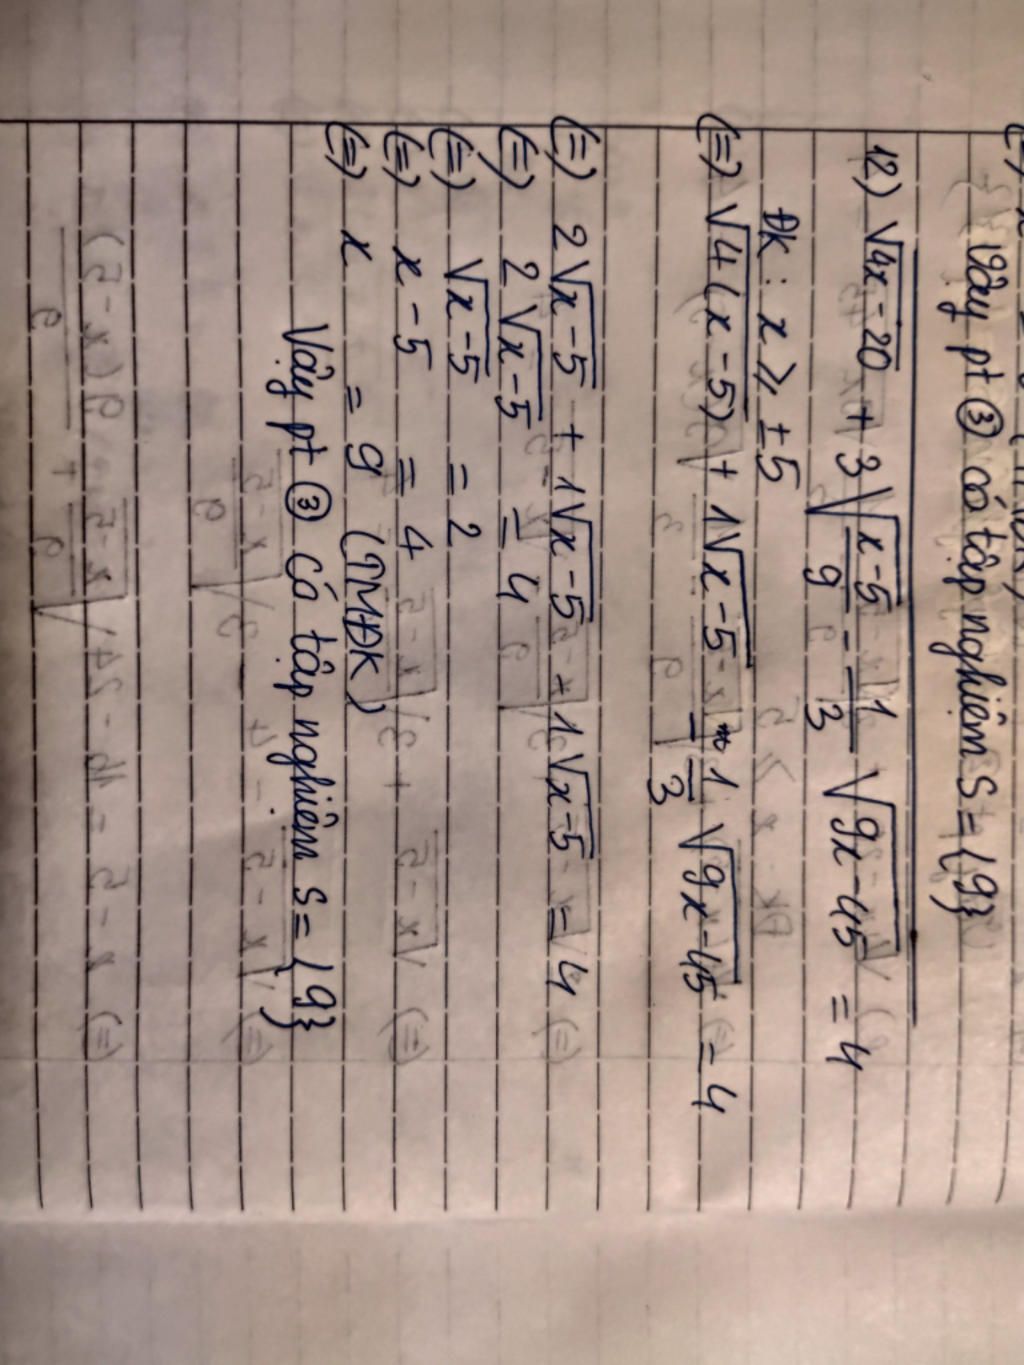 Vậy pt ③ có tập nghiệm S = {9}
12) √4x-20 + 3√x-5/9 - 1/3 √9x-45 = 4
ĐK: x ⩾ ±5
(=) √4(x-5) + 1√x-5 - 1/3 √9x-45 = 4
(=) 2√x-5 + 1√x-5 - 1√x-5 = 4
(=) 2√x-5 = 4
(=) √x-5 = 2
(=) x-5 = 4
(=) x = 9 (TMĐK)
Vậy pt ③ có tập nghiệm S = {9}